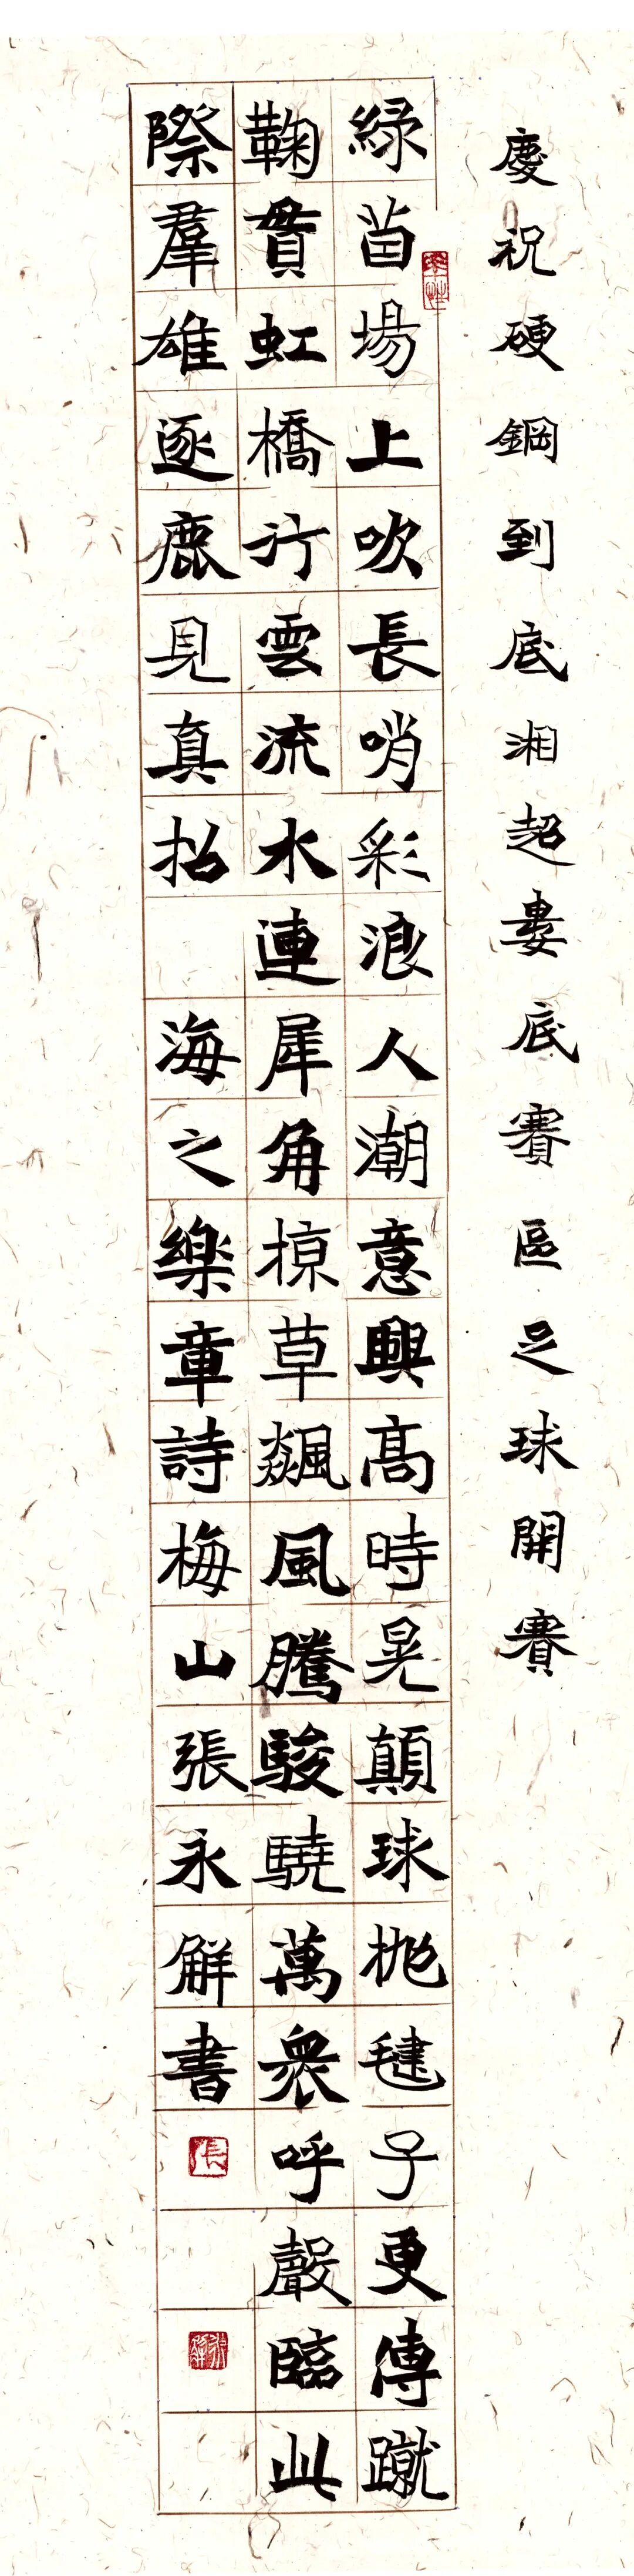 慶祝硬鋼到底湘超婁底賽區足球開賽
綠茵場上吹長哨彩浪人潮意興高時晃顛球拋毽子更傳蹴
鞠貫虹橋行雲流水連犀角掠草飆風騰駿驍萬衆呼聲臨此
際羣雄逐鹿見真招 海之樂章詩梅山張永解書
張